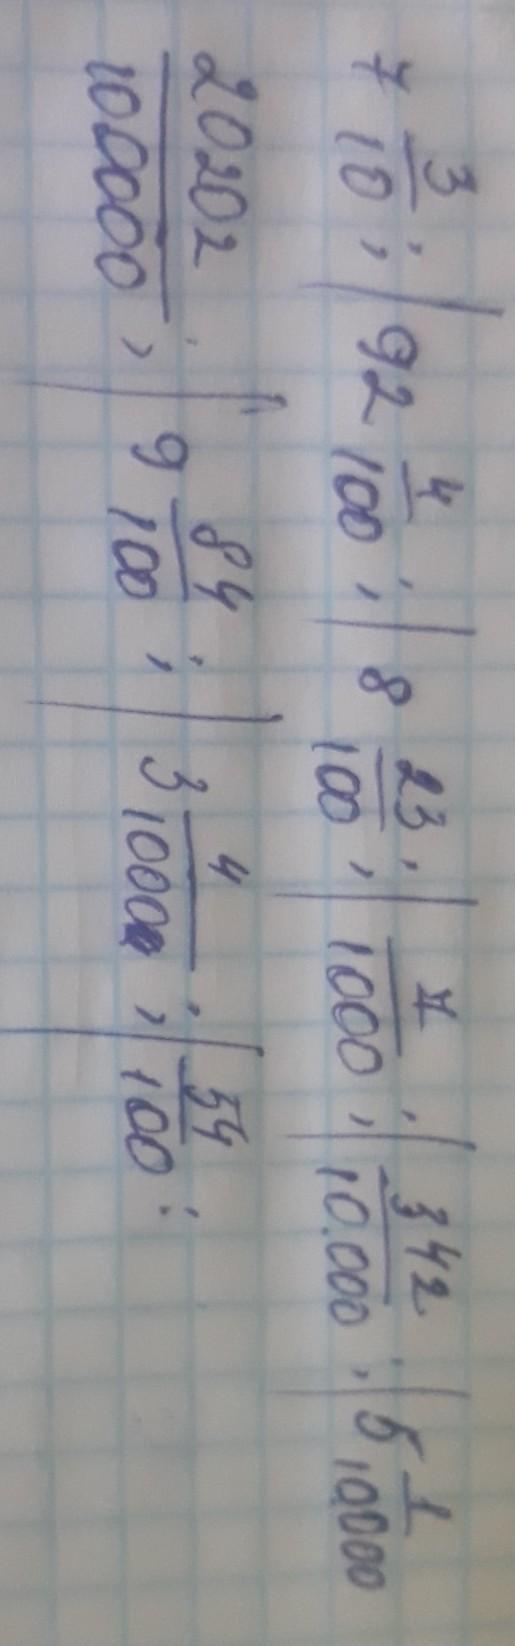 7 3/10 ; | 92 4/100 ; | 8 23/100 ; | 7/1000 ; | 342/10.000 ; | 5 1/10000
20202/100000 ; | 9 84/100 ; | 3 4/1000 ; | 54/100 :